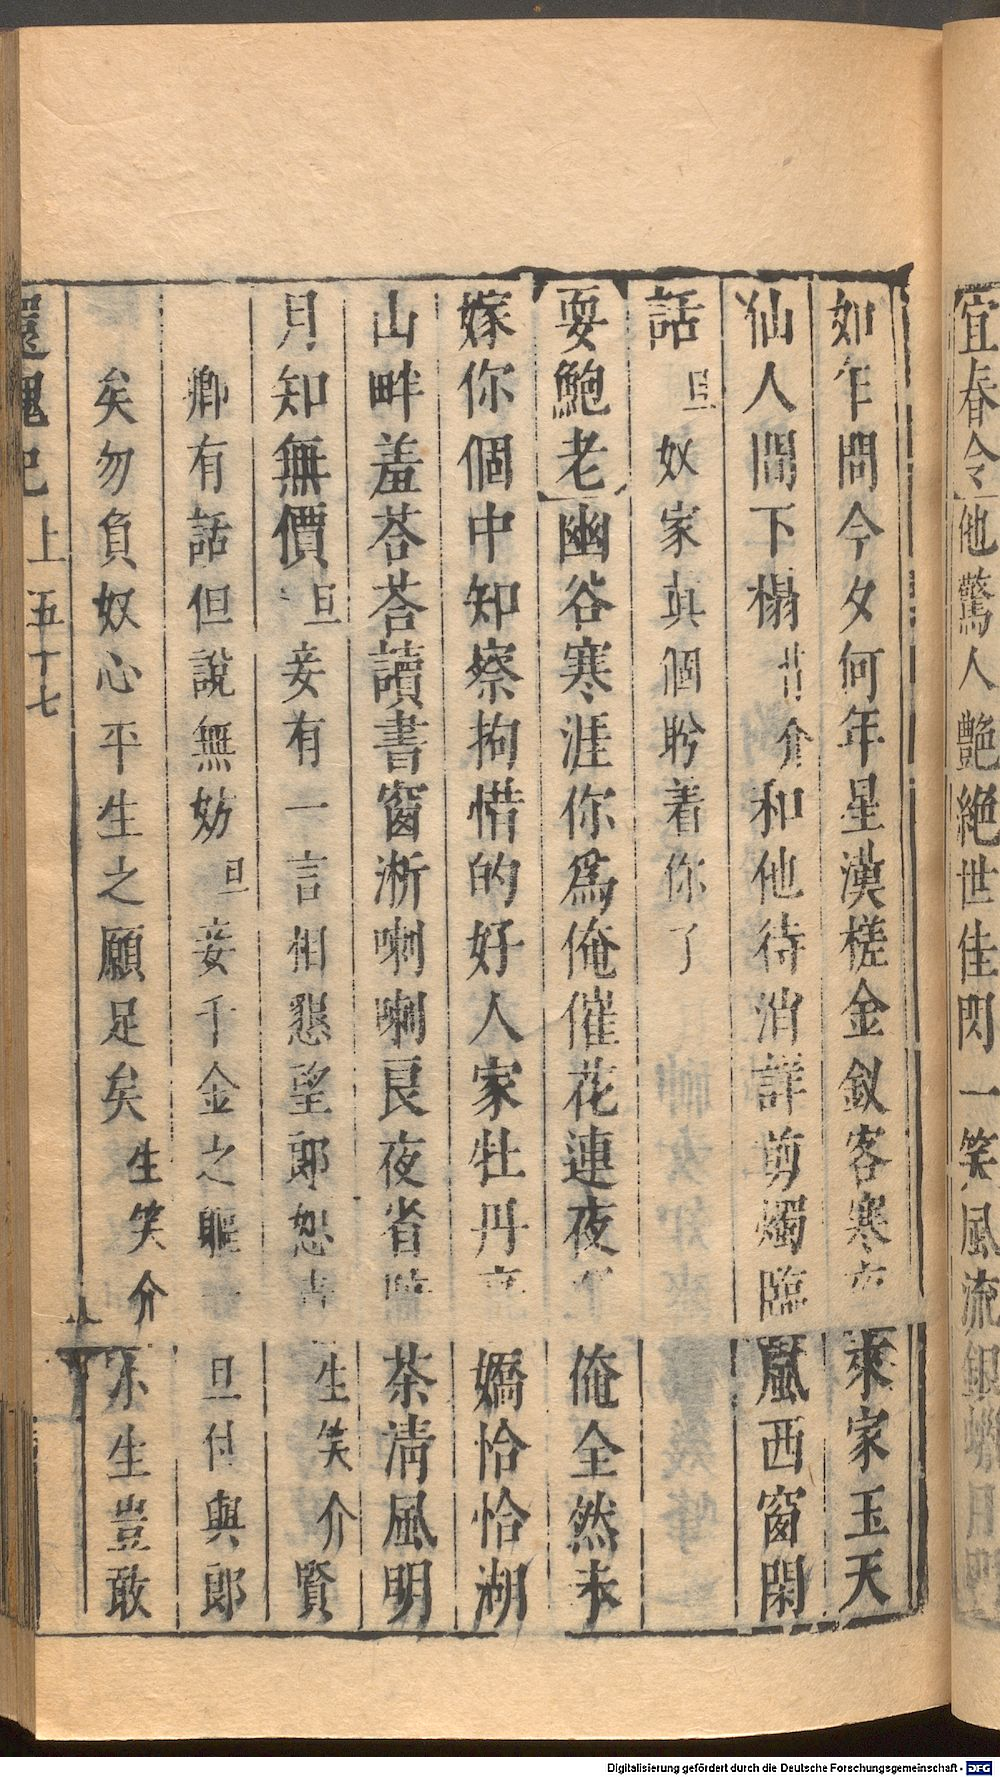 宜春令他驚人艷絕世佳閃一笑風流銀蠟月明
如乍問今夕何年星漢槎金釵客寒夜來家玉天
仙人間下榻背介和他待消詳剪燭臨風西窗閑
話旦奴家真個盻着你了
耍鮑老幽谷寒涯你爲俺催花連夜俺全然未
嫁你個中知察拘惜的好人家牡丹亭嬌恰恰湖
山畔羞荅荅讀書窗淅喇喇良夜省陪茶清風明
月知無價旦妾有一言相懇望郎恕責生笑介賢
卿有話但說無妨旦妾千金之軀一旦付與郎
矣勿負奴心平生之願足矣生笑介小生豈敢
還魂記上五十七
Digitalisierung gefördert durch die Deutsche Forschungsgemeinschaft - DFG